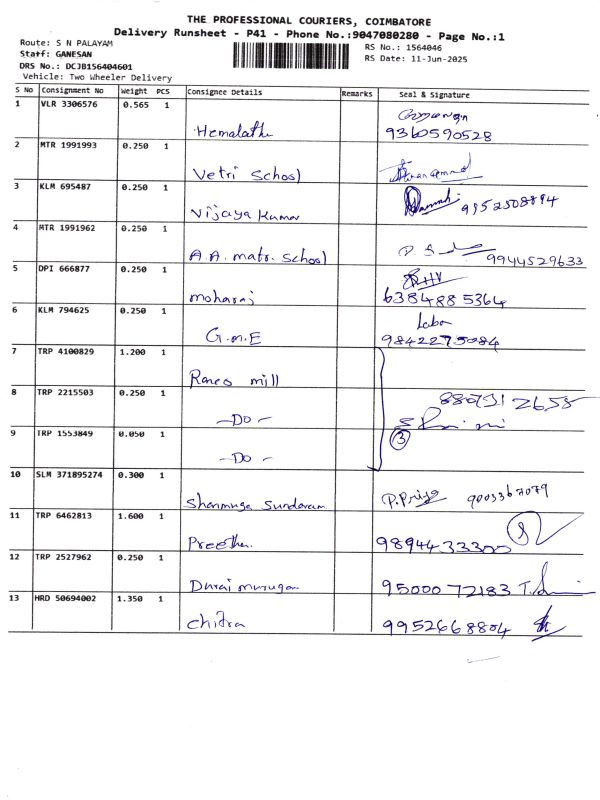 THE PROFESSIONAL COURIERS, COIMBATORE
Delivery Runsheet - P41 - Phone No.:9047080280 - Page No.:1
Route: S N PALAYAM
Staff: GANESAN
DRS No.: DCJB156404601
Vehicle: Two Wheeler Delivery
RS No.: 1564046
RS Date: 11-Jun-2025
S No Consignment No Weight PCS Consignee Details Remarks Seal & Signature
1 VLR 3306576 0.565 1
Hemalatha 9360590528
2 MTR 1991993 0.250 1
Vetri School
3 KLM 695487 0.250 1
Vijaya Kumar 9952508894
4 MTR 1991962 0.250 1
A.A. matr. School 9944529633
5 DPI 666877 0.250 1
moharaj 6384885364
6 KLM 794625 0.250 1
G.m.E 9842275084
7 TRP 4100829 1.200 1
Ranes mill
8 TRP 2215503 0.250 1
-Do-
9 TRP 1553849 0.050 1
-Do- 3
10 SLM 371895274 0.300 1
Shanmuga Sundaram P.Priya 9003367079
11 TRP 6462813 1.600 1
Preetha. 9894433300
12 TRP 2527962 0.250 1
Durai murugan 9500072183
13 HRD 50694002 1.350 1
Chitra 9952668804